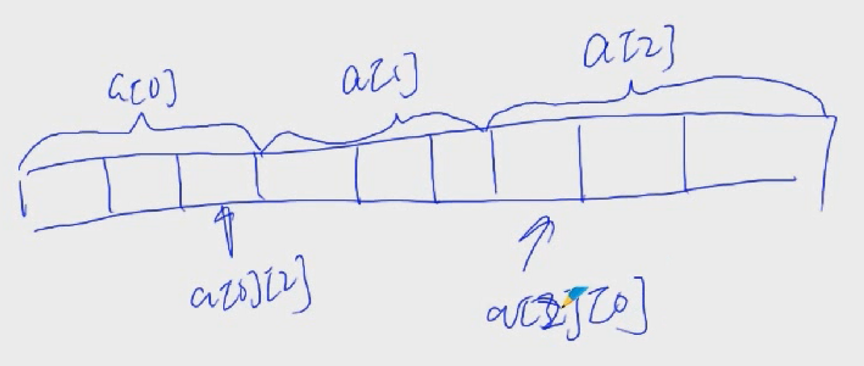 a[0] a[1] a[2]
a[0][2] a[2][0]